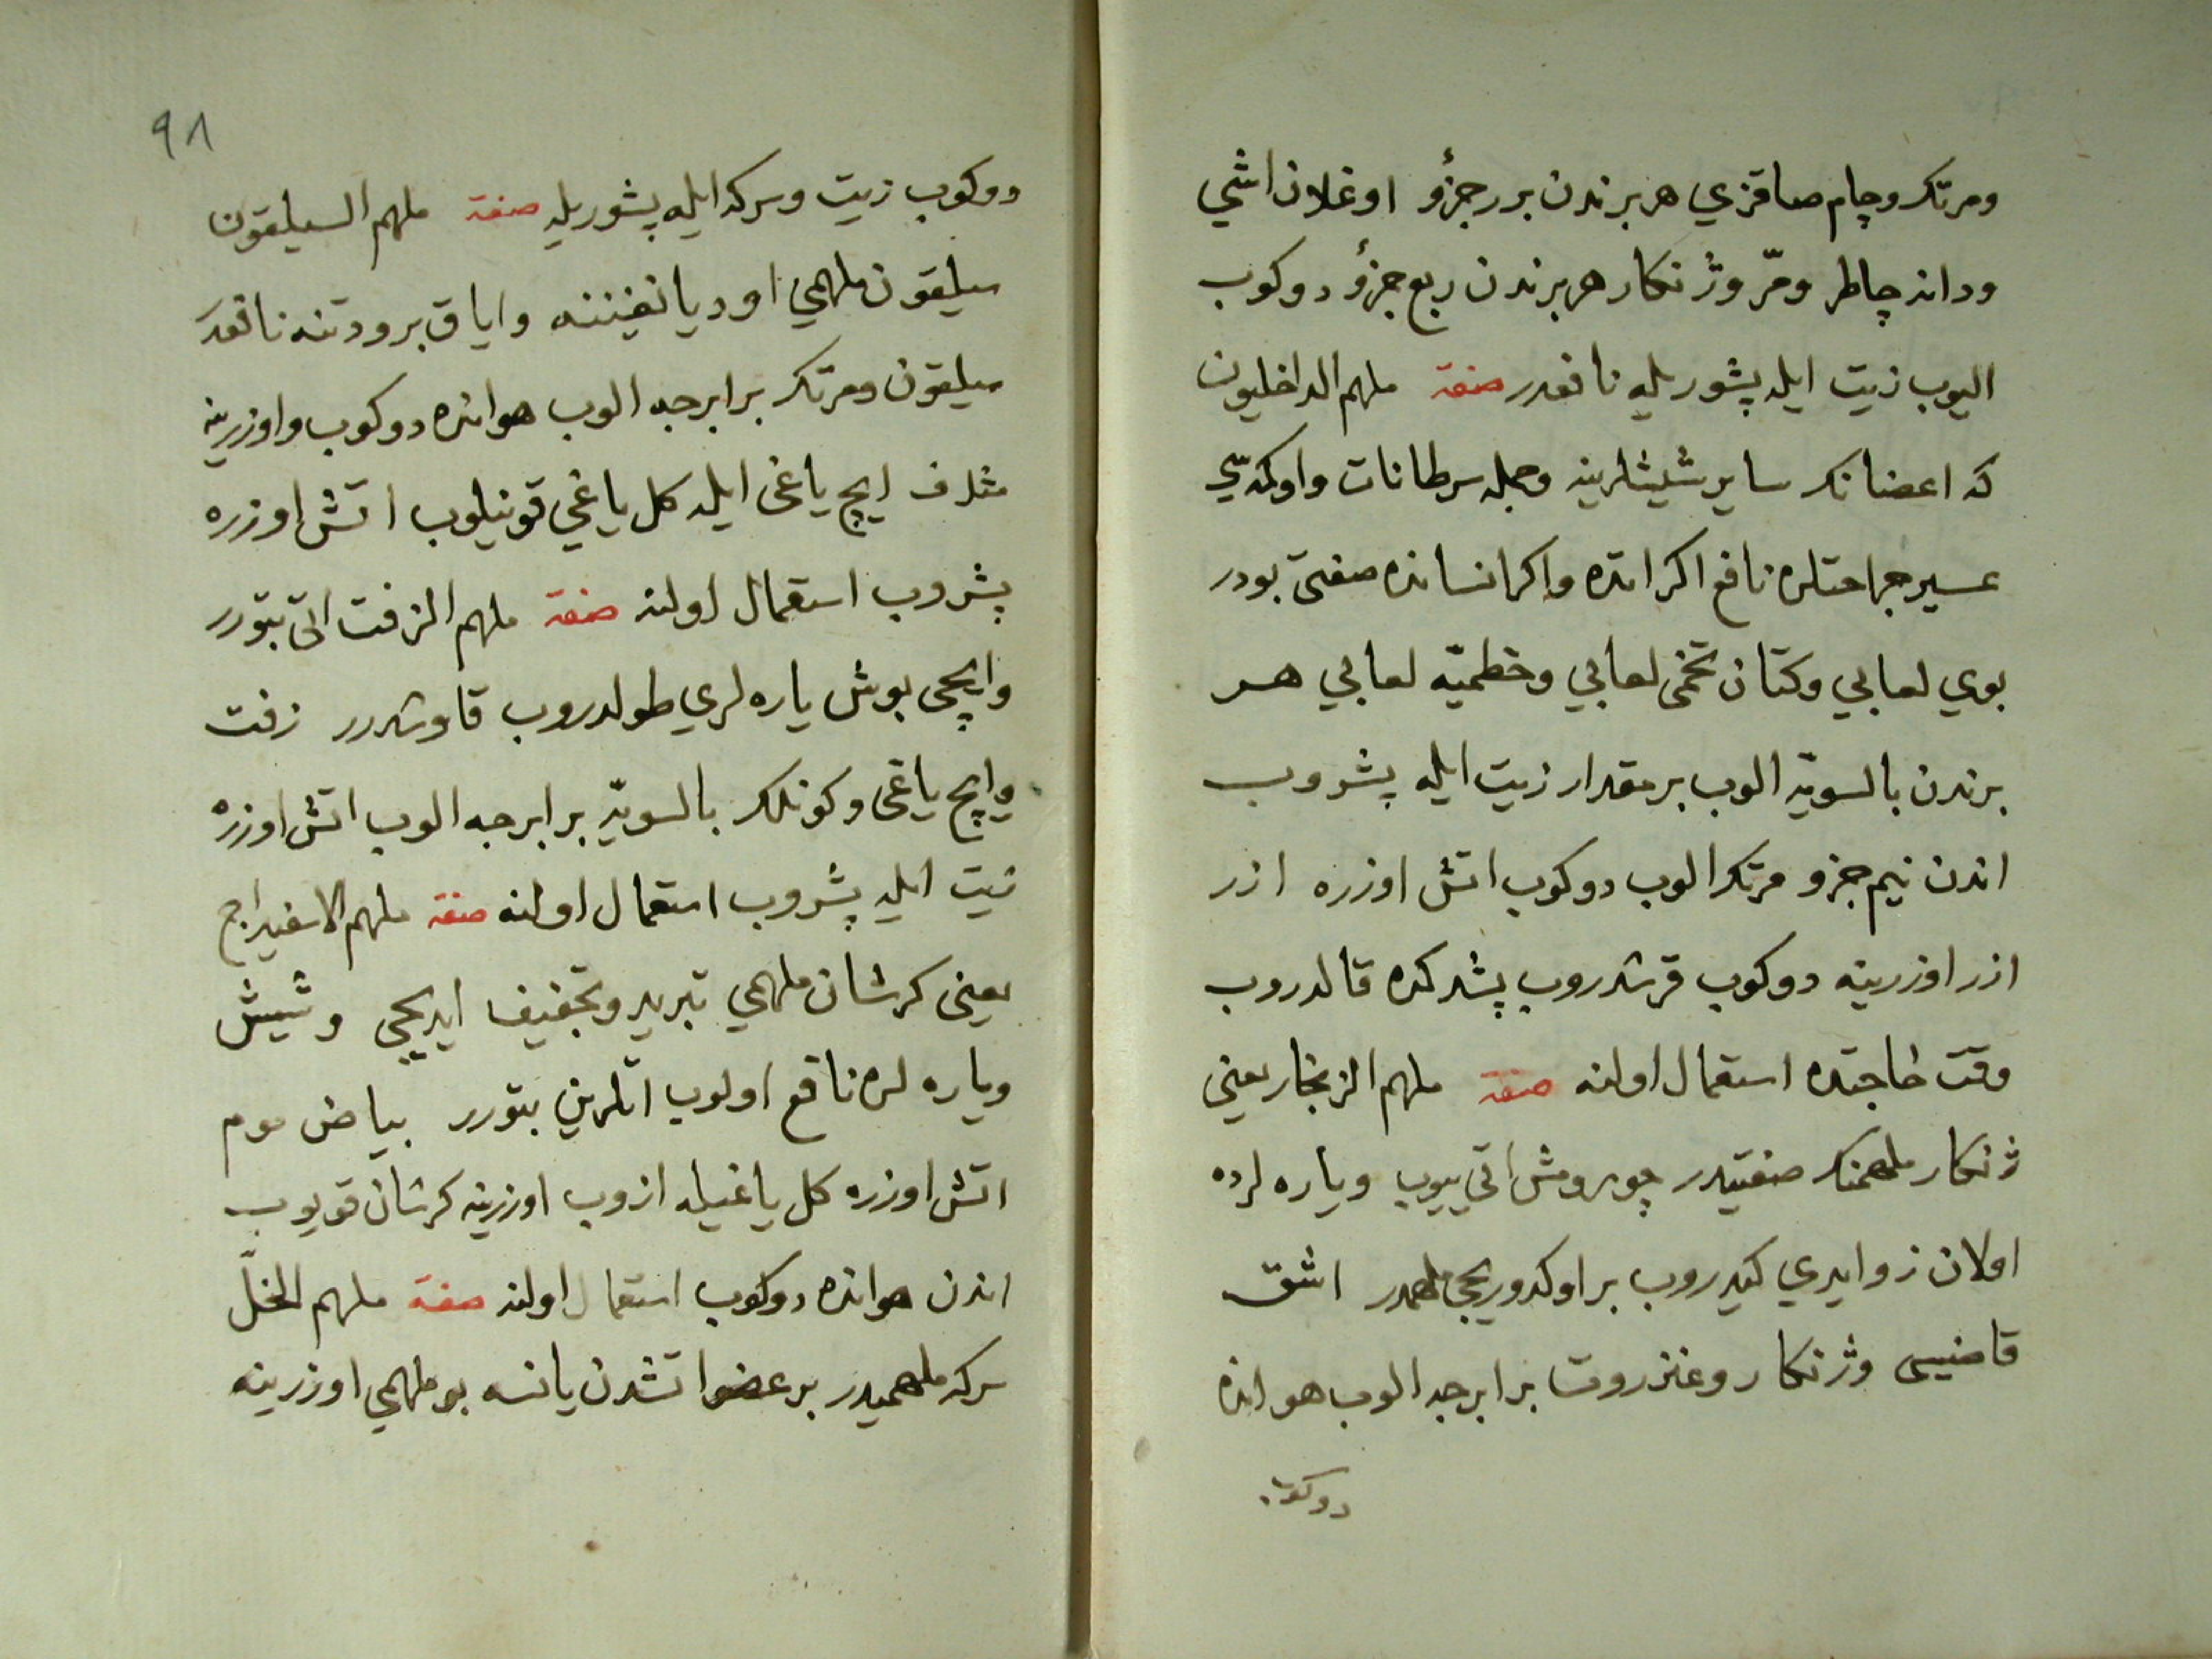 ومرتك وچام صاقزي هر برندن برر جزؤ اوغلان اشي
ودانه چاطر ومرّ وژنكار هر برندن ربع جزؤ دوكوب
اليوب زيت ايله پشوريله نافعدر صفة ملهم الداخليون
كه اعضانك ساير شيشلرينه وجمله سرطانات واوكدسي
عسير جراحتلره نافع اكر اتده واكر انسانده صفتى بودر
بوي لعابي وكتان تخمى لعابي وخطميّه لعابي هر
برندن بالسويّه الوب بر مقدار زيت ايله پشروب
اندن نيم جزو مرتك الوب دوكوب اتش اوزره ازر
ازر اوزرينه دوكوب قرشدروب پشدكده قالدروب
وقت حاجتده استعمال اولنه صفة ملهم الزنجار يعنى
ژنكار ملهمنك صفتيدر چورومش اتي ييوب وياره لرده
اولان زوايدي كيدروب بر اوكدوريجى ملهمدر اشق
قاضيسى وژنكار وعنزروت برابرجه الوب هوانده
دوكوب
٩٨
دوكوب زيت وسركه ايله پشوريله صفة ملهم السيلقون
سيلقون ملهمي اود يانغيننه واياق برودتنه نافعدر
سيلقون ومرتك برابرجه الوب هوانده دوكوب واوزرينه
مثلاف ايچ ياغى ايله كل ياغي قونيلوب اتش اوزره
پشروب استعمال اولنه صفة ملهم الزفت اتى بتورر
وايچى بوش ياره لري طولدروب قاوشدرر زفت
وايچ ياغى وكونلك بالسويّه برابرجه الوب اتش اوزره
زيت ايله پشروب استعمال اولنه صفة ملهم الاسفيداج
يعنى كرشان ملهمي تبريد وتجفيف ايديجى وشيش
وياره لره نافع اولوب اتلرين بتورر بياض موم
اتش اوزره كل ياغيله ازوب اوزرينه كرشان قويوب
اندن هوانده دوكوب استعمال اولنه صفة ملهم الخلّ
سركه ملهميدر بر عضو اتشدن يانسه بو ملهمي اوزرينه